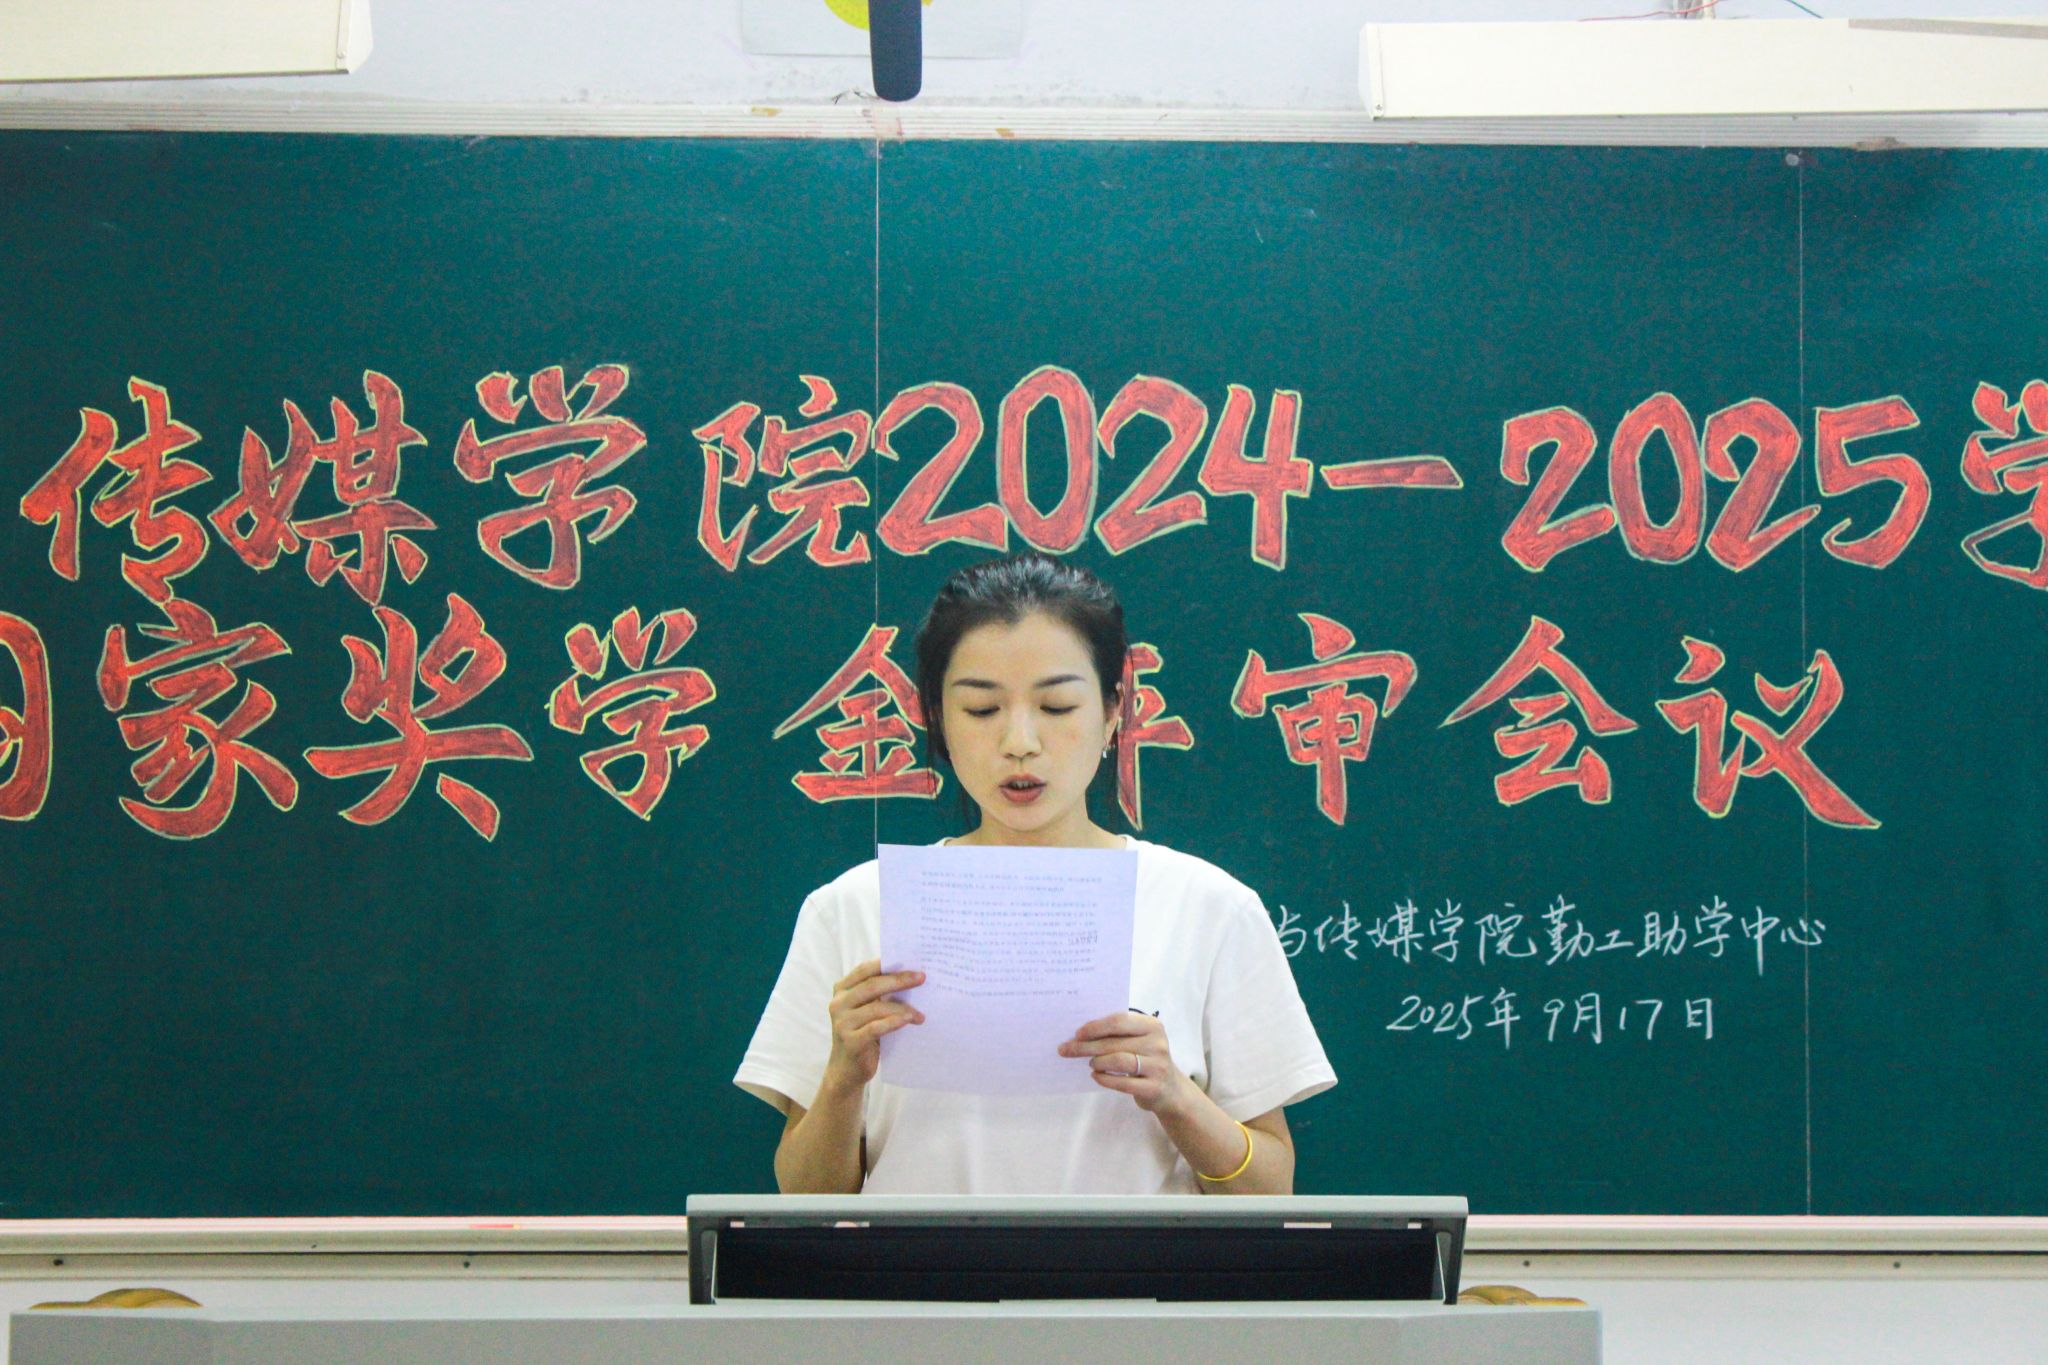 传媒学院2024-2025学
国家奖学金评审会议
与传媒学院勤工助学中心
2025年9月17日